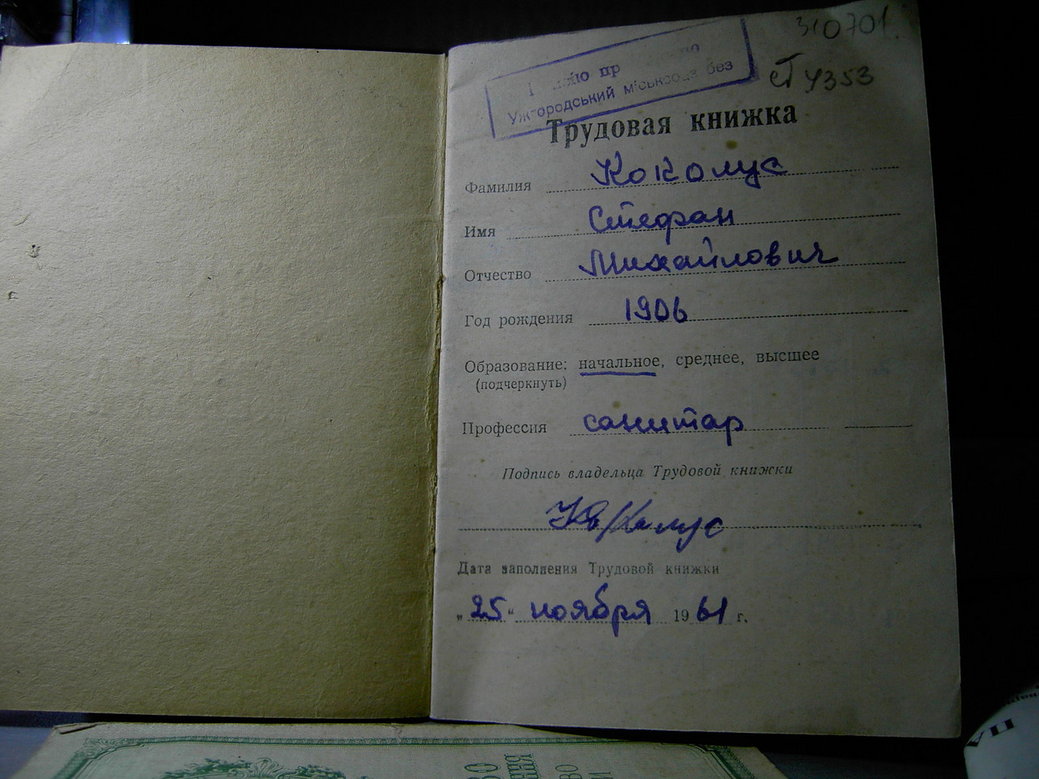 310701.
ст 4353
Ужгородський міськвоз без
Трудовая книжка
Фамилия Коколус
Имя Стефан
Отчество Михайлович
Год рождения 1906
Образование: начальное, среднее, высшее
(подчеркнуть)
Профессия санитар
Подпись владельца Трудовой книжки
Дата заполнения Трудовой книжки
„25“ ноября 1961 г.
VII